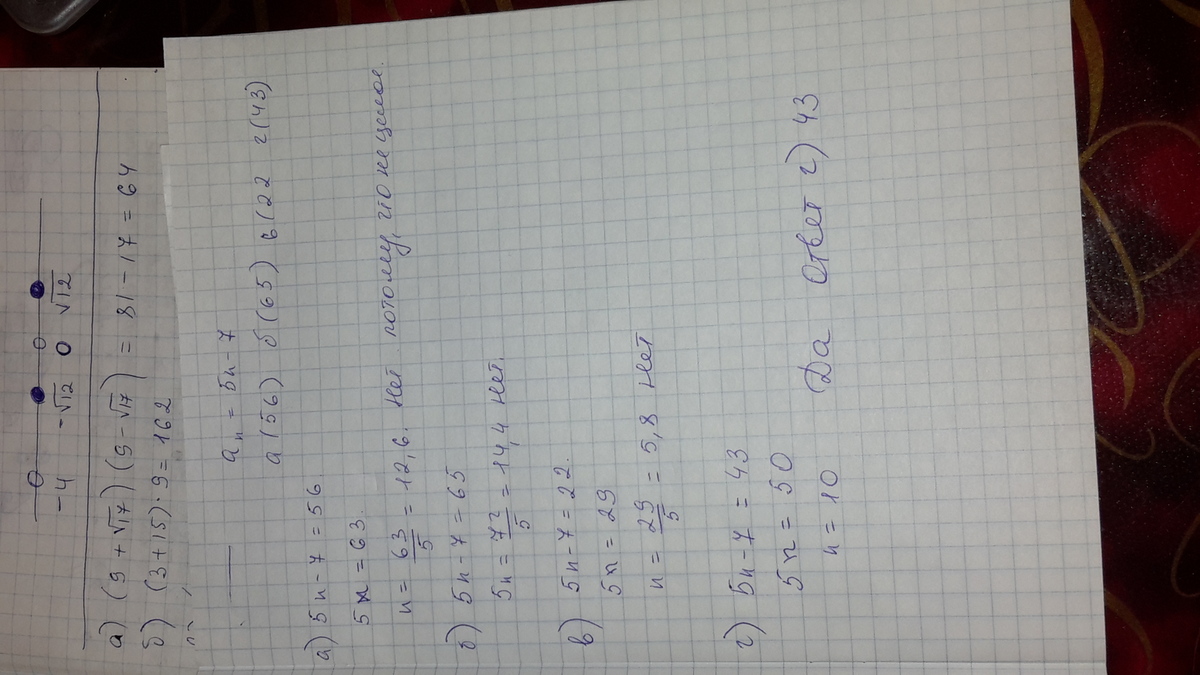 -4 -√12 0 √12
а) (9+√17)(9-√17) = 81-17=64
б) (3+15)·9=162
aₙ = 5n-7
а(56) б(65) в(22 г(43)
а) 5n-7=56
5n=63.
n = 63/5 = 12,6. Нет потому, что не целое.
б) 5n-7=65
5n = 72/5 = 14,4 Нет.
в) 5n-7=22.
5n=29
n = 29/5 = 5,8 Нет
г) 5n-7=43
5n=50
n=10 Да Ответ г) 43